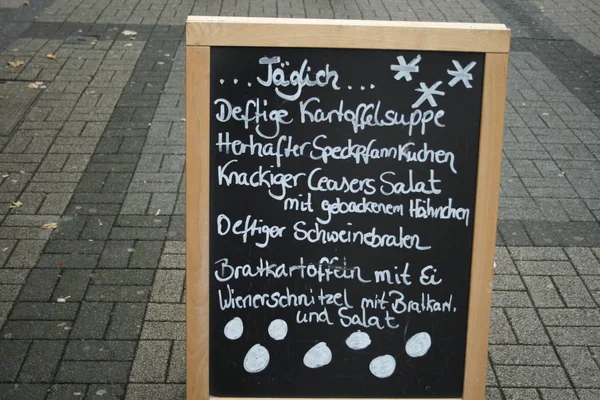 ... Täglich ...
Deftige Kartoffelsuppe
Herhafter Speckpfannkuchen
Knackiger Ceasers Salat
mit gebackenem Hähnchen
Deftiger Schweinebraten
Bratkartoffeln mit Ei
Wienerschnitzel mit Bratkart.
und Salat